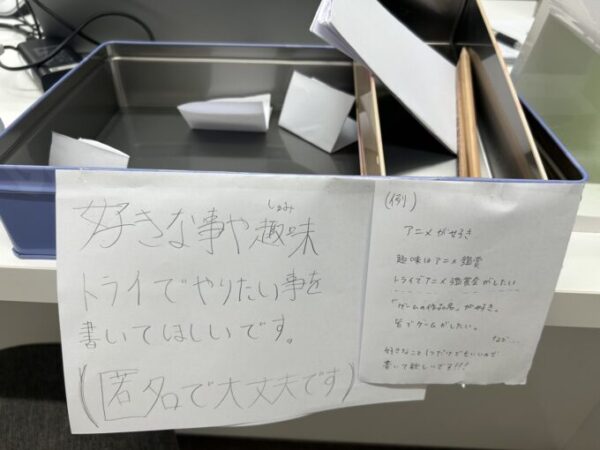 好きな事や趣味
しゅみ
トライでやりたい事を
書いてほしいです。
(匿名で大丈夫です)
(例)
アニメが好き
趣味はアニメ鑑賞
トライでアニメ鑑賞会がしたい
「ゲームの作品名」が好き。
皆でゲームがしたい。
など...
好きなこと1つだけでもいいので
書いて欲しいです!!!